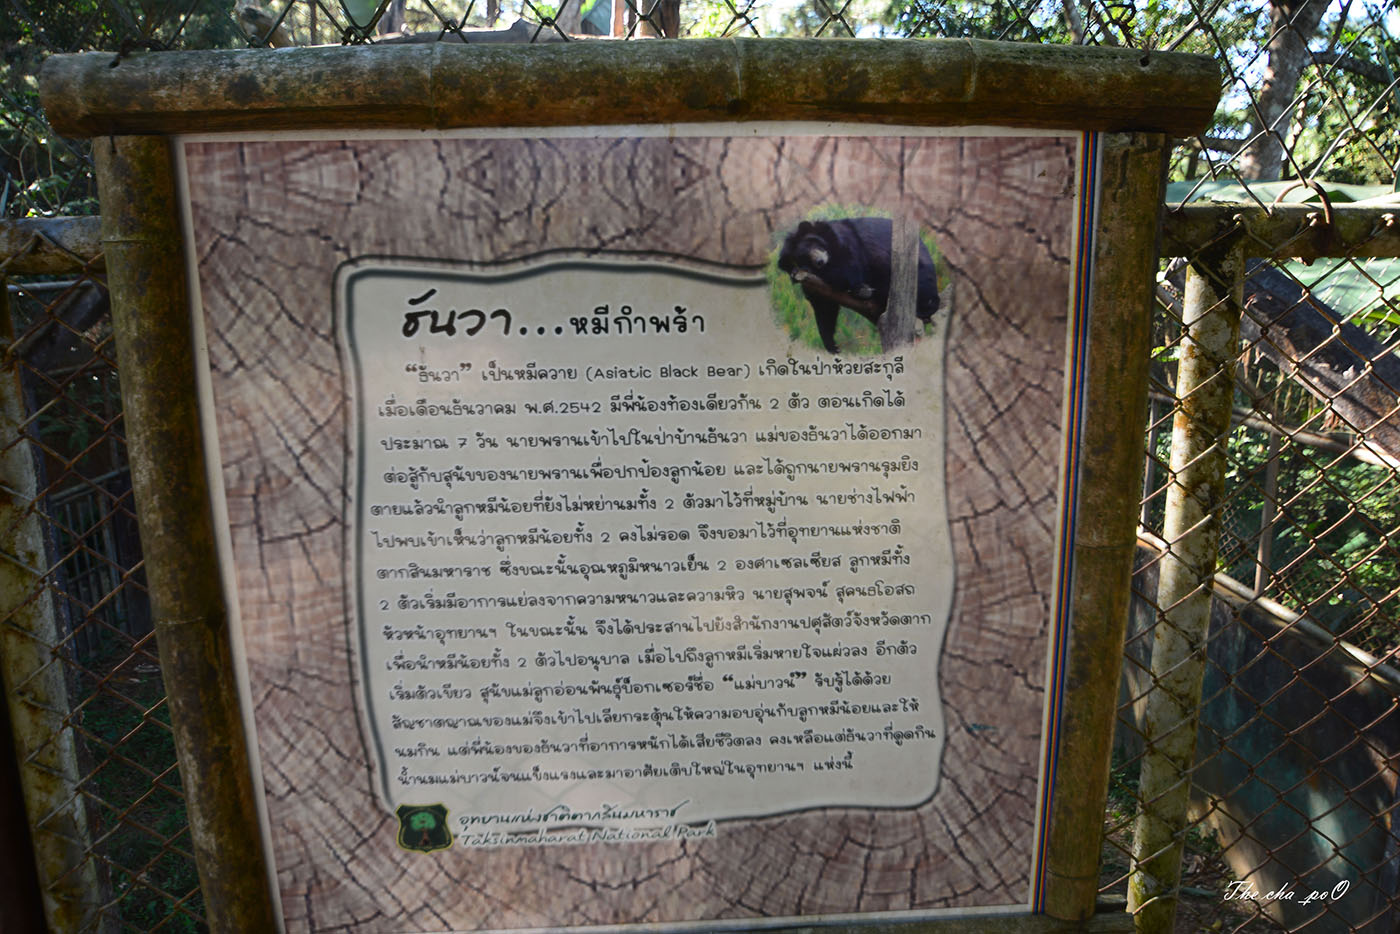 ธันวา...หมีกำพร้า
“ธันวา” เป็นหมีควาย (Asiatic Black Bear) เกิดในป่าห้วยสะกุลี
เมื่อเดือนธันวาคม พ.ศ.2542 มีพี่น้องท้องเดียวกัน 2 ตัว ตอนเกิดได้
ประมาณ 7 วัน นายพรานเข้าไปในป่าบ้านธันวา แม่ของธันวาได้ออกมา
ต่อสู้กับสุนัขของนายพรานเพื่อปกป้องลูกน้อย และได้ถูกนายพรานรุมยิง
ตายแล้วนำลูกหมีน้อยที่ยังไม่หย่านมทั้ง 2 ตัวมาไว้ที่หมู่บ้าน นายช่างไฟฟ้า
ไปพบเข้าเห็นว่าลูกหมีน้อยทั้ง 2 คงไม่รอด จึงขอมาไว้ที่อุทยานแห่งชาติ
ตากสินมหาราช ซึ่งขณะนั้นอุณหภูมิหนาวเย็น 2 องศาเซลเซียส ลูกหมีทั้ง
2 ตัวเริ่มมีอาการแย่ลงจากความหนาวและความหิว นายสุพจน์ สุคนธโอสถ
หัวหน้าอุทยานฯ ในขณะนั้น จึงได้ประสานไปยังสำนักงานปศุสัตว์จังหวัดตาก
เพื่อนำหมีน้อยทั้ง 2 ตัวไปอนุบาล เมื่อไปถึงลูกหมีเริ่มหายใจแผ่วลง อีกตัว
เริ่มตัวเขียว สุนัขแม่ลูกอ่อนพันธุ์บ็อกเซอร์ชื่อ “แม่บาวน์” รับรู้ได้ด้วย
สัญชาตญาณของแม่จึงเข้าไปเลียกระตุ้นให้ความอบอุ่นกับลูกหมีน้อยและให้
นมกิน แต่พี่น้องของธันวาที่อาการหนักได้เสียชีวิตลง คงเหลือแต่ธันวาที่ดูดกิน
น้ำนมแม่บาวน์จนแข็งแรงและมาอาศัยเติบใหญ่ในอุทยานฯ แห่งนี้
อุทยานแห่งชาติตากสินมหาราช
Taksinmaharat National Park
The cha_poO